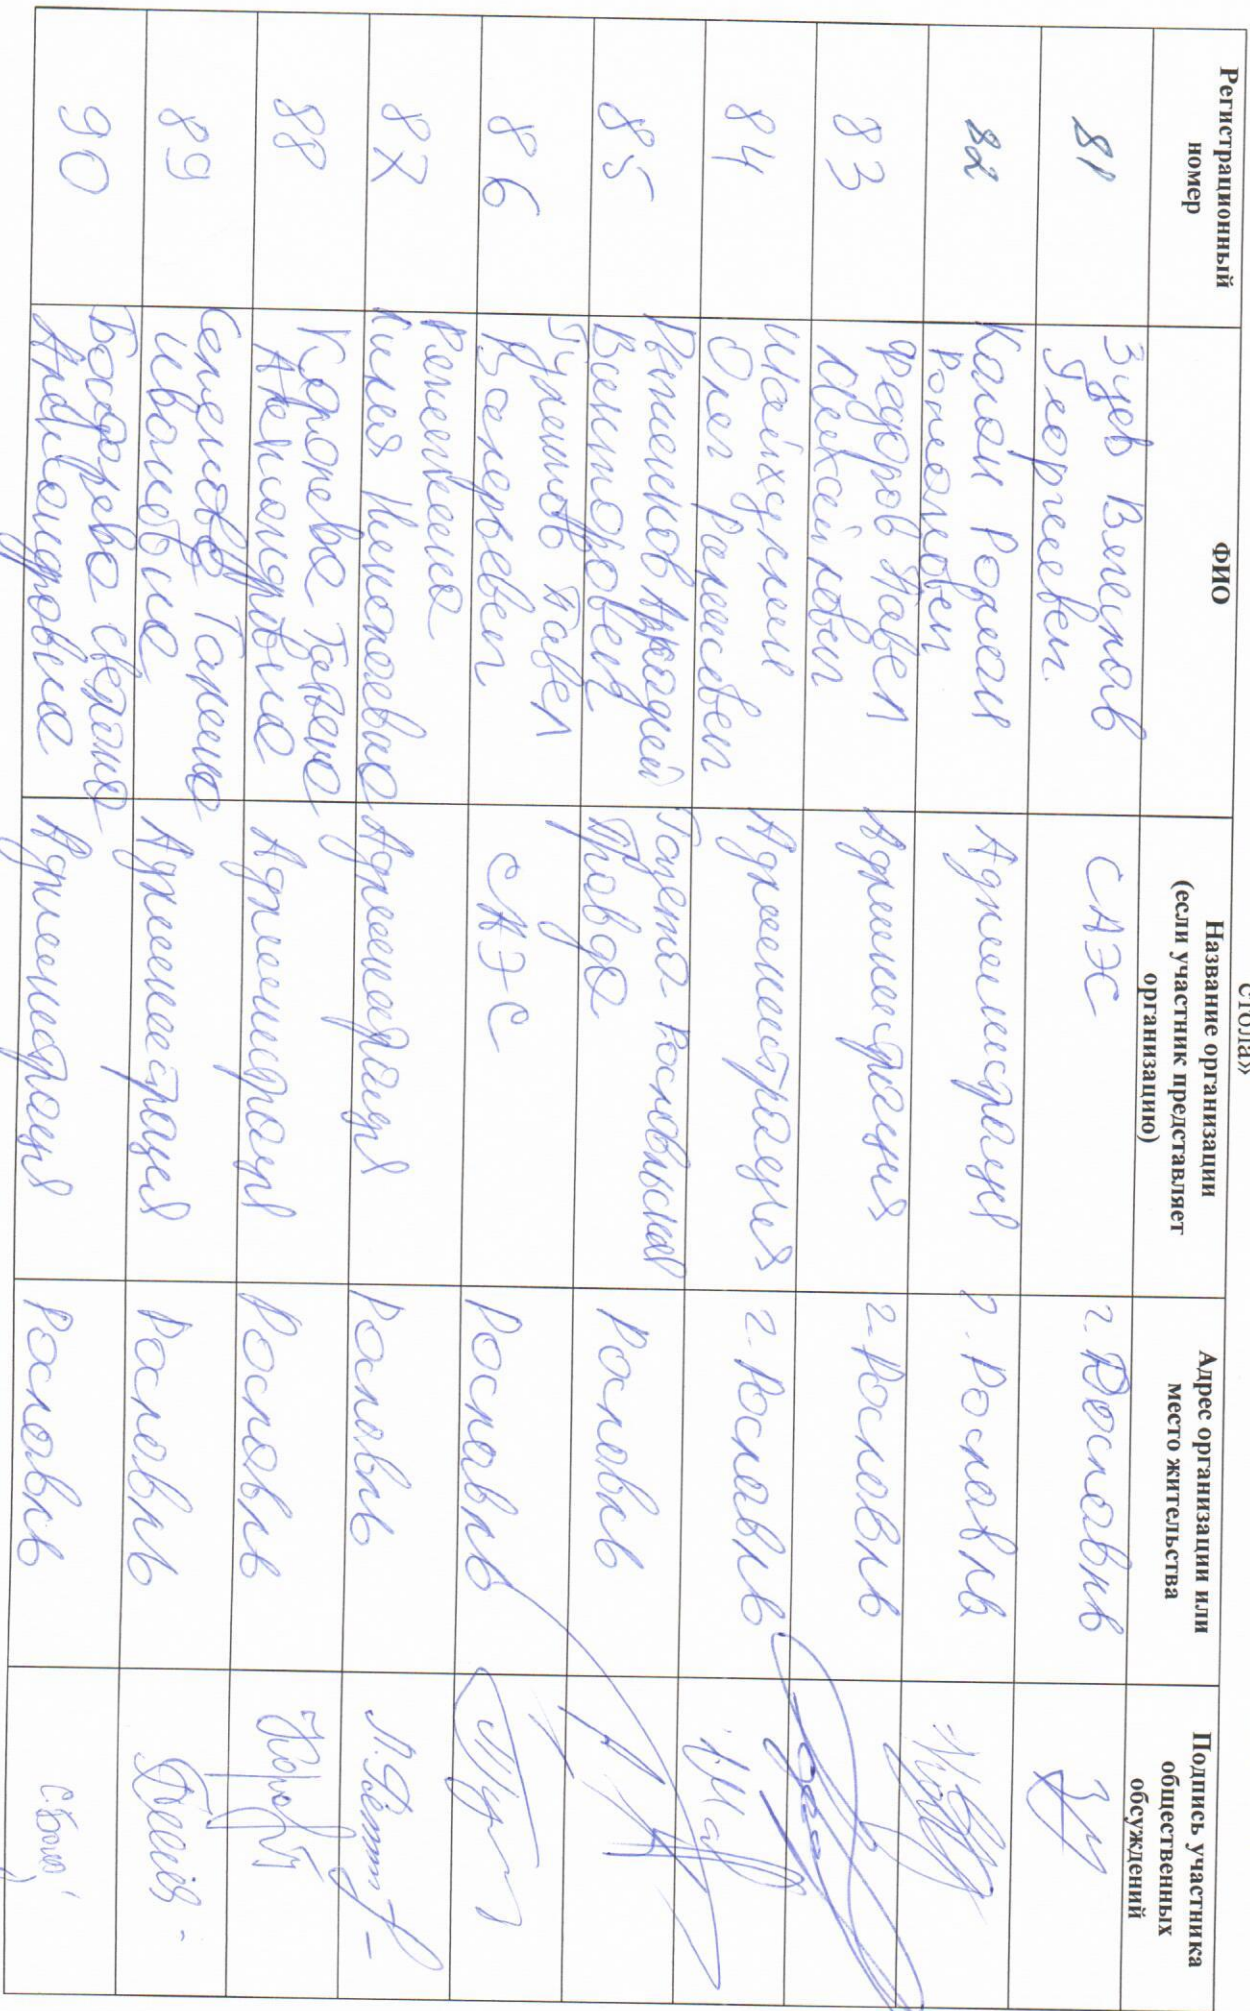 стола»
Регистрационный номер
ФИО
Название организации
(если участник представляет
организацию)
Адрес организации или
место жительства
Подпись участника
общественных
обсуждений
81
Зуев Вячеслав
Георгиевич
САЭС
г. Рославль
82
Роман
Романович
Администрация
г. Рославль
83
Федоров Павел
Алексеевич
Администрация
г. Рославль
84
Шайхулин
Олег Раисович
Администрация
г. Рославль
85
Аркадий
Викторович
Газета Рославльская
Правда
Рославль
86
Павел
Валерьевич
САЭС
Рославль
87
Лилия Николаевна
Администрация
Рославль
88
Королева Татьяна
Александровна
Администрация
Рославль
89
Селезнева Галина
Ивановна
Администрация
Рославль
90
Бондарева Светлана
Александровна
Администрация
Рославль